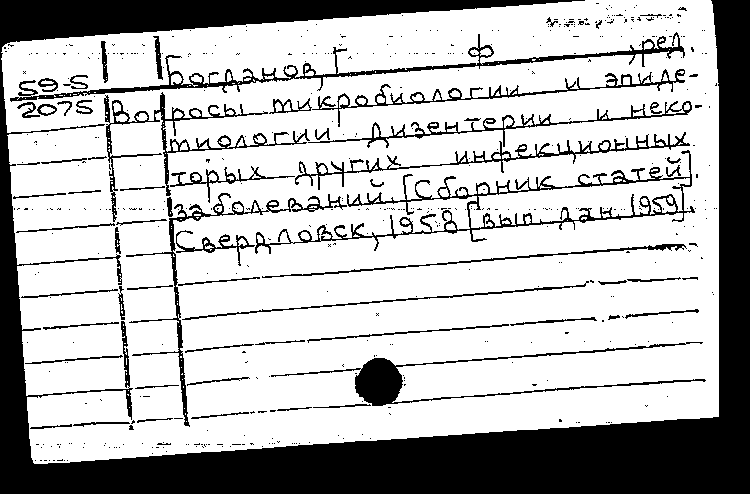 59-5
2075
Богданов, Г Ф , ред.
Вопросы микробиологии и эпиде-
миологии дизентерии и неко-
торых других инфекционных
заболеваний. [Сборник статей].
Свердловск, 1958 [вып. дан. 1959].